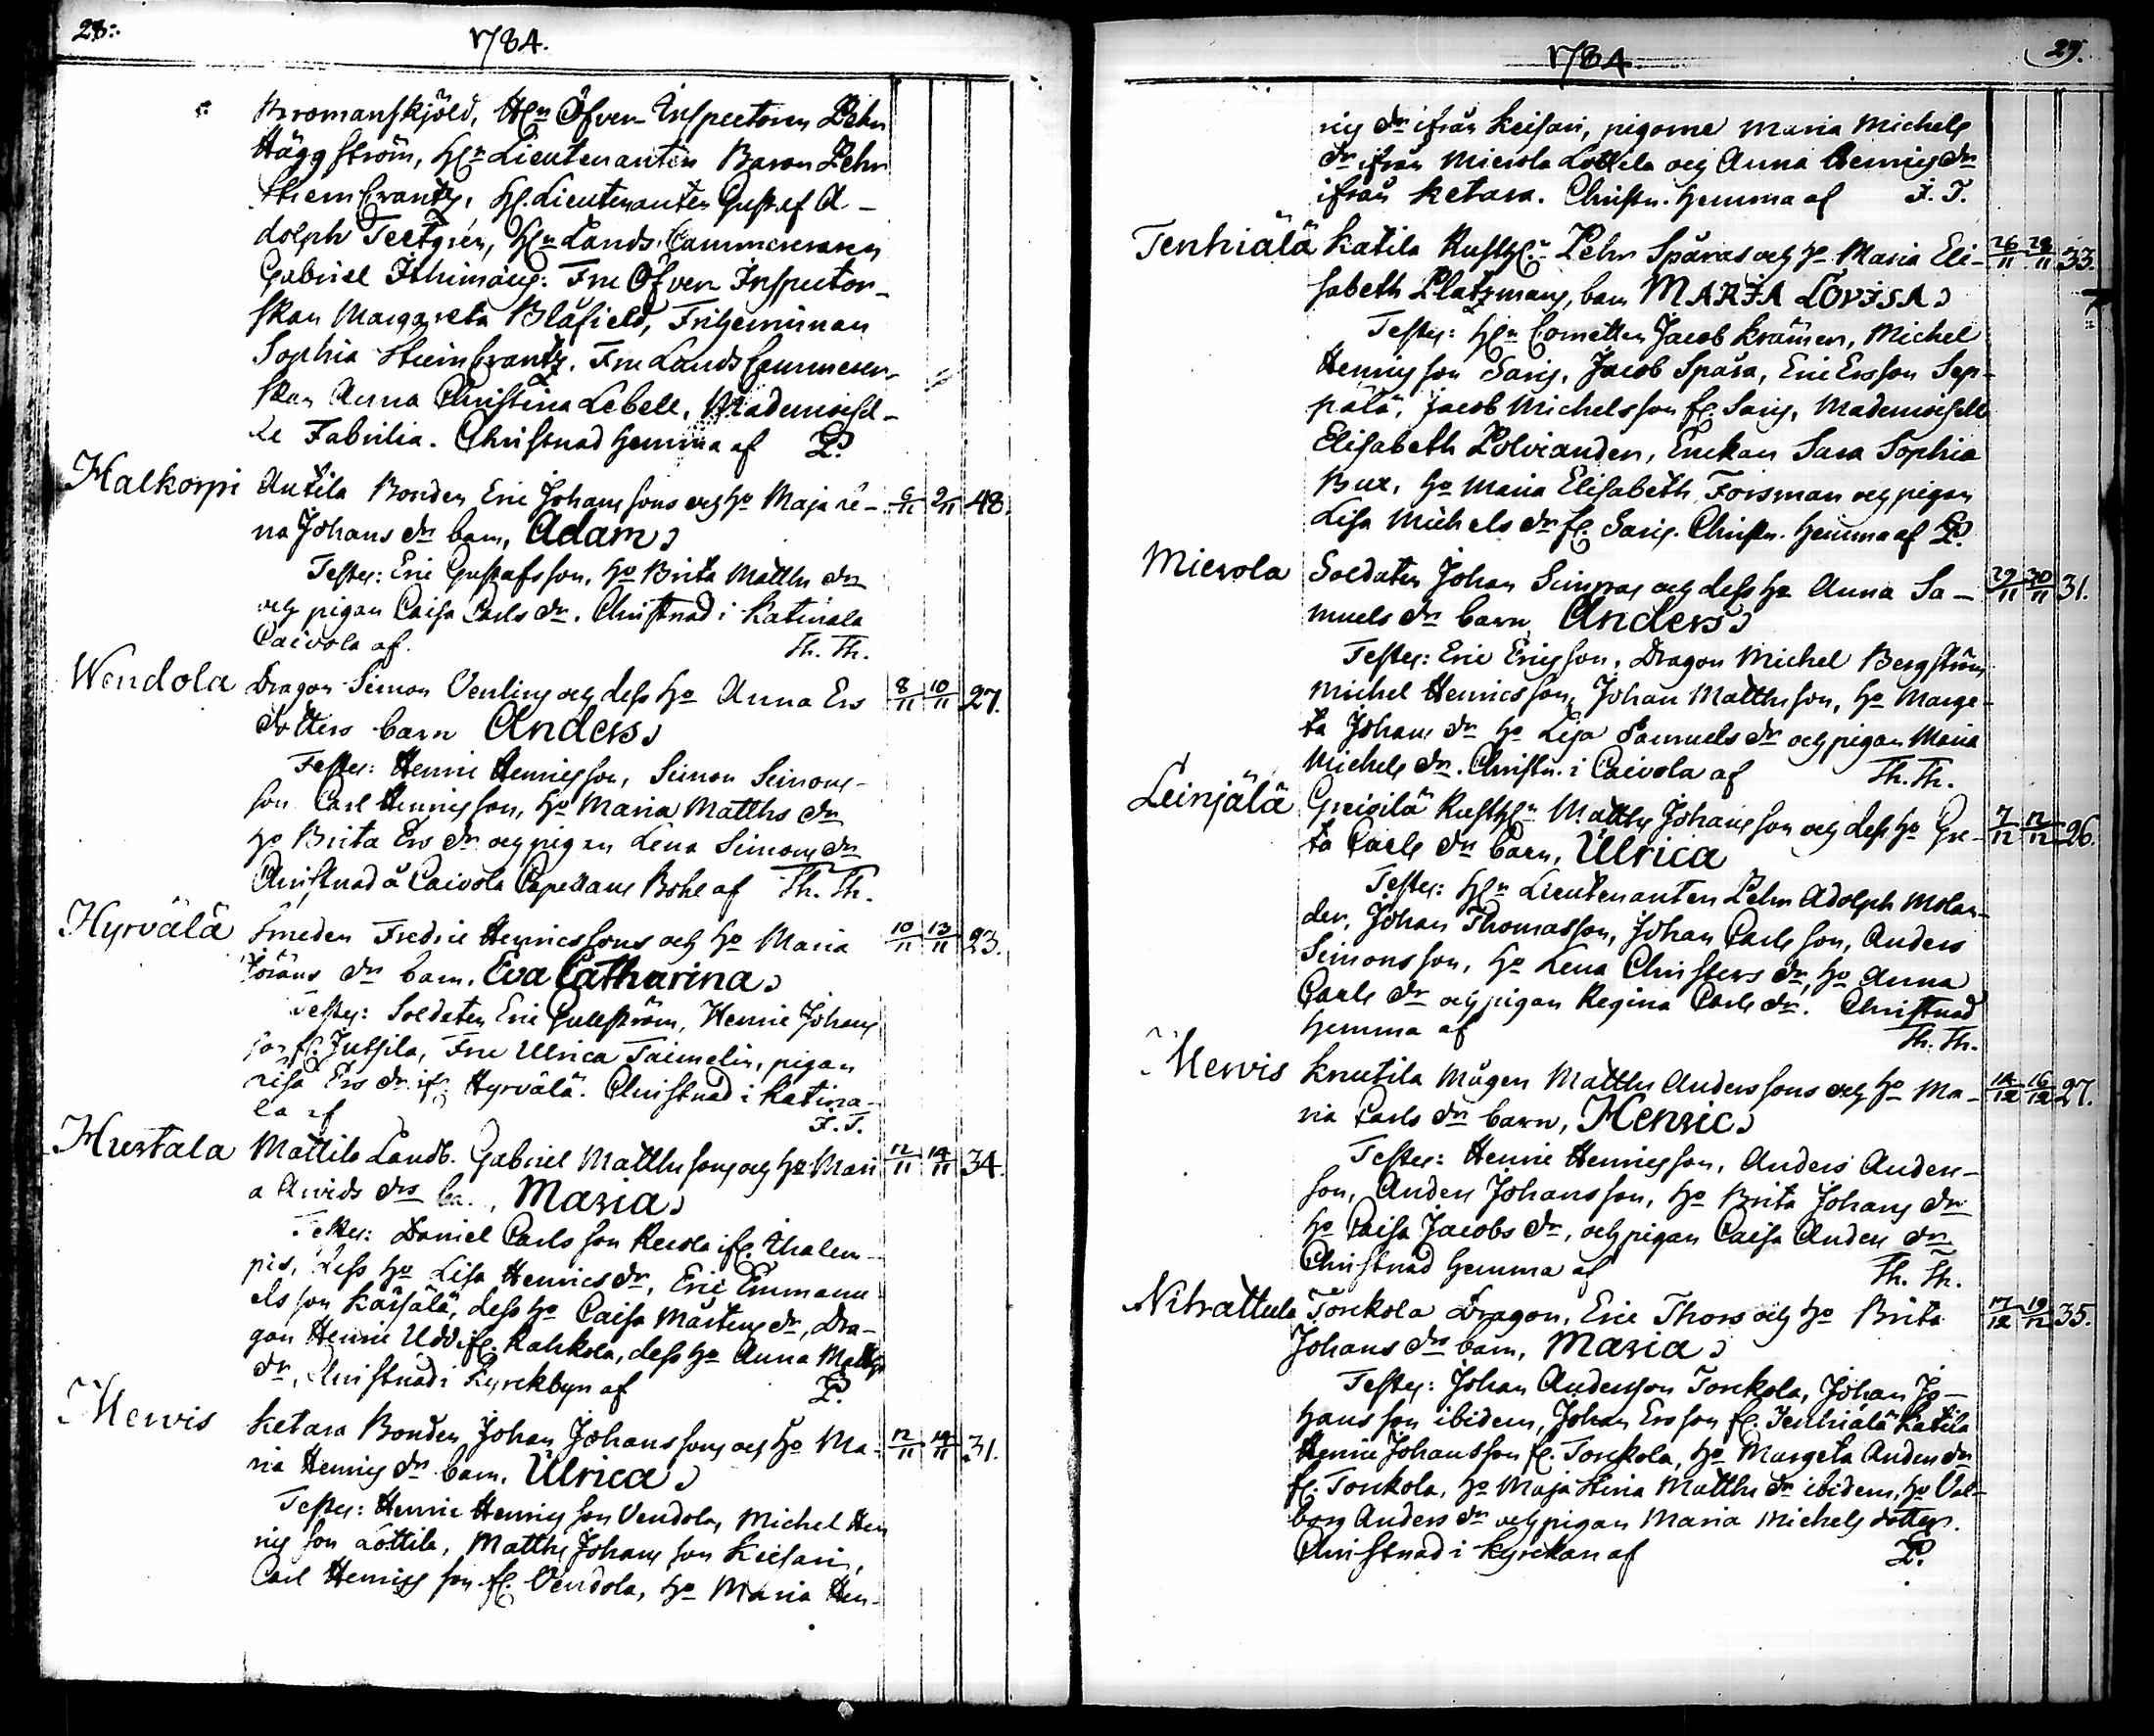 28.
1784.
Wromanskjöld, H:n Öfver-Inspectoren Pehr
Häggström, H:n Lieutenanten Baron Pehr
Stiernkrantz, H. Lieutenanten Gustaf A-
dolph Teetgrén, H:n Lands Cammereraren
Gabriel Fru Öfver Inspector-
skan Margareta Blåfield,
Sophia Stiernkrantz. Fru Lands Cammerer-
skan Anna Christina Lebell, Mademoisel-
le Fabrilia. Christnad hemma af P.
Kalkorpi Antila Bonden Eric Johanssons och ho Maja Le- 6/11 9/11 48.
na Johans dr barn, Adam
Testes: Eric Gustafsson, ho Brita Matths dr
och pigan Caisa Carls dr. Christnad i Katinala
Caivola af Th. Th.
Wendola Dragon Simon Venling och dess ho Anna Ers 8/11 10/11 27.
dotters barn Anders
Testes: Henric Henricsson, Simon Simons-
son Carl Henricsson, ho Maria Matths dr
ho Brita Ers dr och pigan Lena Simons dr
Christnad å Caivola Capellans Bohl af Th. Th.
Hyrvälä Smeden Fredric Henricssons och ho Maria 10/11 13/11 23.
Jöräns dr barn, Eva Catharina
Testes: Soldaten Eric Gullström, Henric Johans
son fr. Jutsila, Fru Ulrica Taimelin, pigan
Lisa Ers dr if: Hyrvälä. Christnad i Katina-
la af F. T.
Hurtala Mattila Landb. Gabriel Matthssons och ho Mari 12/11 14/11 34.
a Arvids drs ba., Maria
Testes: Daniel Carlsson Recola ifr.
pis, dess ho Lisa Henrics dr, Eric Emmanu
elsson Karsälä, dess ho Caisa Mårtens dr, Dra-
gon Henric Udd ifr. Kahkola, dess ho Anna Matths
dr, Christnad i Kyrckbyn af P.
Mervis Ketara Bonden Johan Johanssons och ho Ma- 12/11 14/11 31.
ria Henrics dr barn, Ulrica
Testes: Henric Henricsson Vendola, Michel Hen
ricsson Lottila, Matths Johansson Keisari,
Carl Henricsson fr. Vendola, ho Maria Hen-
1784.
29.
rics dr ifrån Keisari, pigorne Maria Michels
dr ifrån Mierola Lottila och Anna Henrics dr
ifrån Ketara. Christn. hemma af F. T.
Tenhiälä Katila Rusth:n Pehr Spåras och ho Maria Eli- 26/11 28/11 33.
sabeth Platzmans, barn MARIA LOVISA
Testes: H:n Cornetten Jacob Kræmer, Michel
Henricsson Saris, Jacob Spåra, Eric Ersson Sep-
pälä, Jacob Michelsson fr. Saris, Mademoiselle
Elisabeth Polviander, Enckan Sara Sophia
Bux, ho Maria Elisabeth Forsman och pigan
Lisa Michels dr fr. Saris. Christn. hemma af P.
Mierola Soldaten Johan Simpas och dess ho Anna Sa- 29/11 30/11 31.
muels dr barn Anders
Testes: Eric Ericsson, Dragon Michel Bergström
Michel Henricsson, Johan Matthsson, ho Marge-
ta Johans dr ho Lisa Samuels dr och pigan Maria
Michels dr. Christn. i Caivola af Th. Th.
Leinjälä Greisilä Rusth:n Matths Johansson och dess ho Gre- 7/12 12/12 26.
ta Carls dr barn, Ulrica
Testes: H:n Lieutenanten Pehr Adolph Molan-
der, Johan Thomasson, Johan Carlsson, Anders
Simonsson, ho Lena Christers dr, ho Anna
Carls dr och pigan Regina Carls dr. Christnad
hemma af Th. Th.
Mervis Knutila Mågen Matths Anderssons och ho Ma- 14/12 16/12 27.
ria Carls dr barn, Henric
Testes: Henric Henricsson, Anders Anders-
son, Anders Johansson, ho Brita Johans dr
ho Caisa Jacobs dr, och pigan Caisa Anders dr
Christnad hemma af Th. Th.
Nihattula Torckola Dragon, Eric Thors och ho Brita 17/12 19/12 35.
Johans drs barn, Maria
Testes: Johan Andersson Torckola, Johan Jo-
hansson ibidem, Johan Ersson fr. Tenhiälä Katila
Henric Johansson fr. Torckola, ho Margeta Anders dr
fr. Torckola, ho Maja Stina Matths dr ibidem, ho Val-
borg Anders dr och pigan Maria Michels dotter.
Christnad i Kyrckan af P.